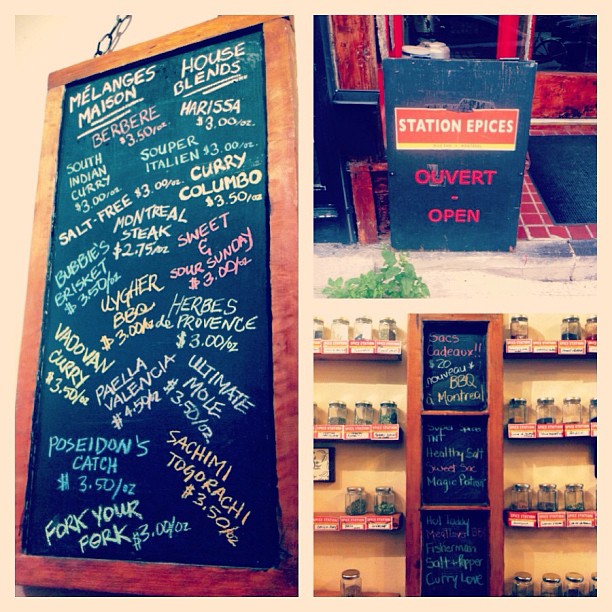 MÉLANGES
MAISON
HOUSE
BLENDS
BERBERE
$3.50/oz.
HARISSA
$3.00/oz.
SOUTH
INDIAN
CURRY
$3.00/oz.
SOUPER
ITALIEN $3.00/oz.
SALT-FREE $3.00/oz.
CURRY
COLUMBO
$3.50/oz
MONTREAL
STEAK
$2.75/oz
SWEET
&
SOUR SUNDAY
$3.00/oz
BUBBIE'S
BRISKET
$3.50/oz
UYGHER
BBQ
$3.00/oz
HERBES
de PROVENCE
$3.00/oz
VADOVAN
CURRY
$3.50/oz
PAELLA
VALENCIA
$4.50/oz
ULTIMATE
MOLE
$3.50/oz
POSEIDON'S
CATCH
$3.50/oz
SACHIMI
TOGORACHI
$3.50/oz
FORK YOUR
PORK $3.00/oz
STATION EPICES
OUVERT
-
OPEN
Sacs
Cadeaux!!
$20
nouveau
BBQ
à Montreal
TNT
Healthy Salt
Sweet Sac
Magic Potion
Hot Toddy
Fisherman
Salt + Pepper
Curry Love